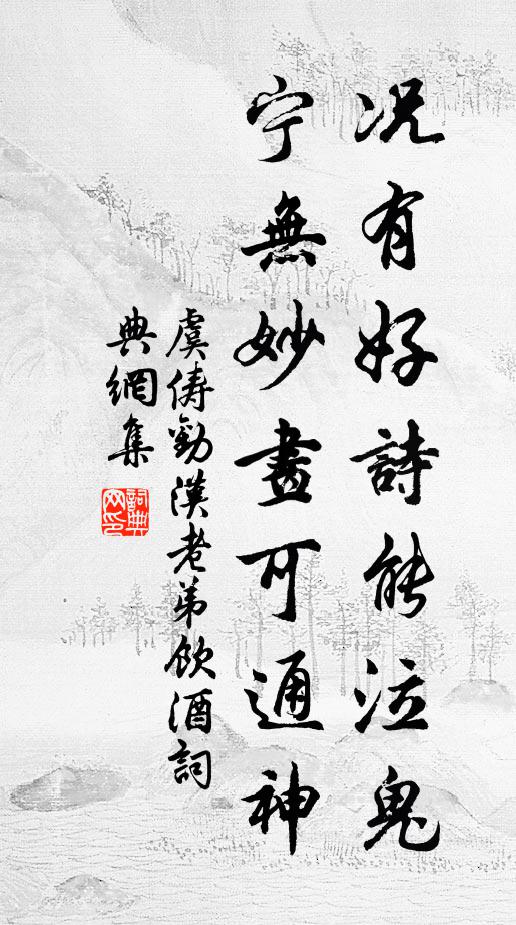 况有好詩能泣鬼
宁無妙畫可通神
虞儔勸漢老弟飲酒詞
典網集
詞典网印